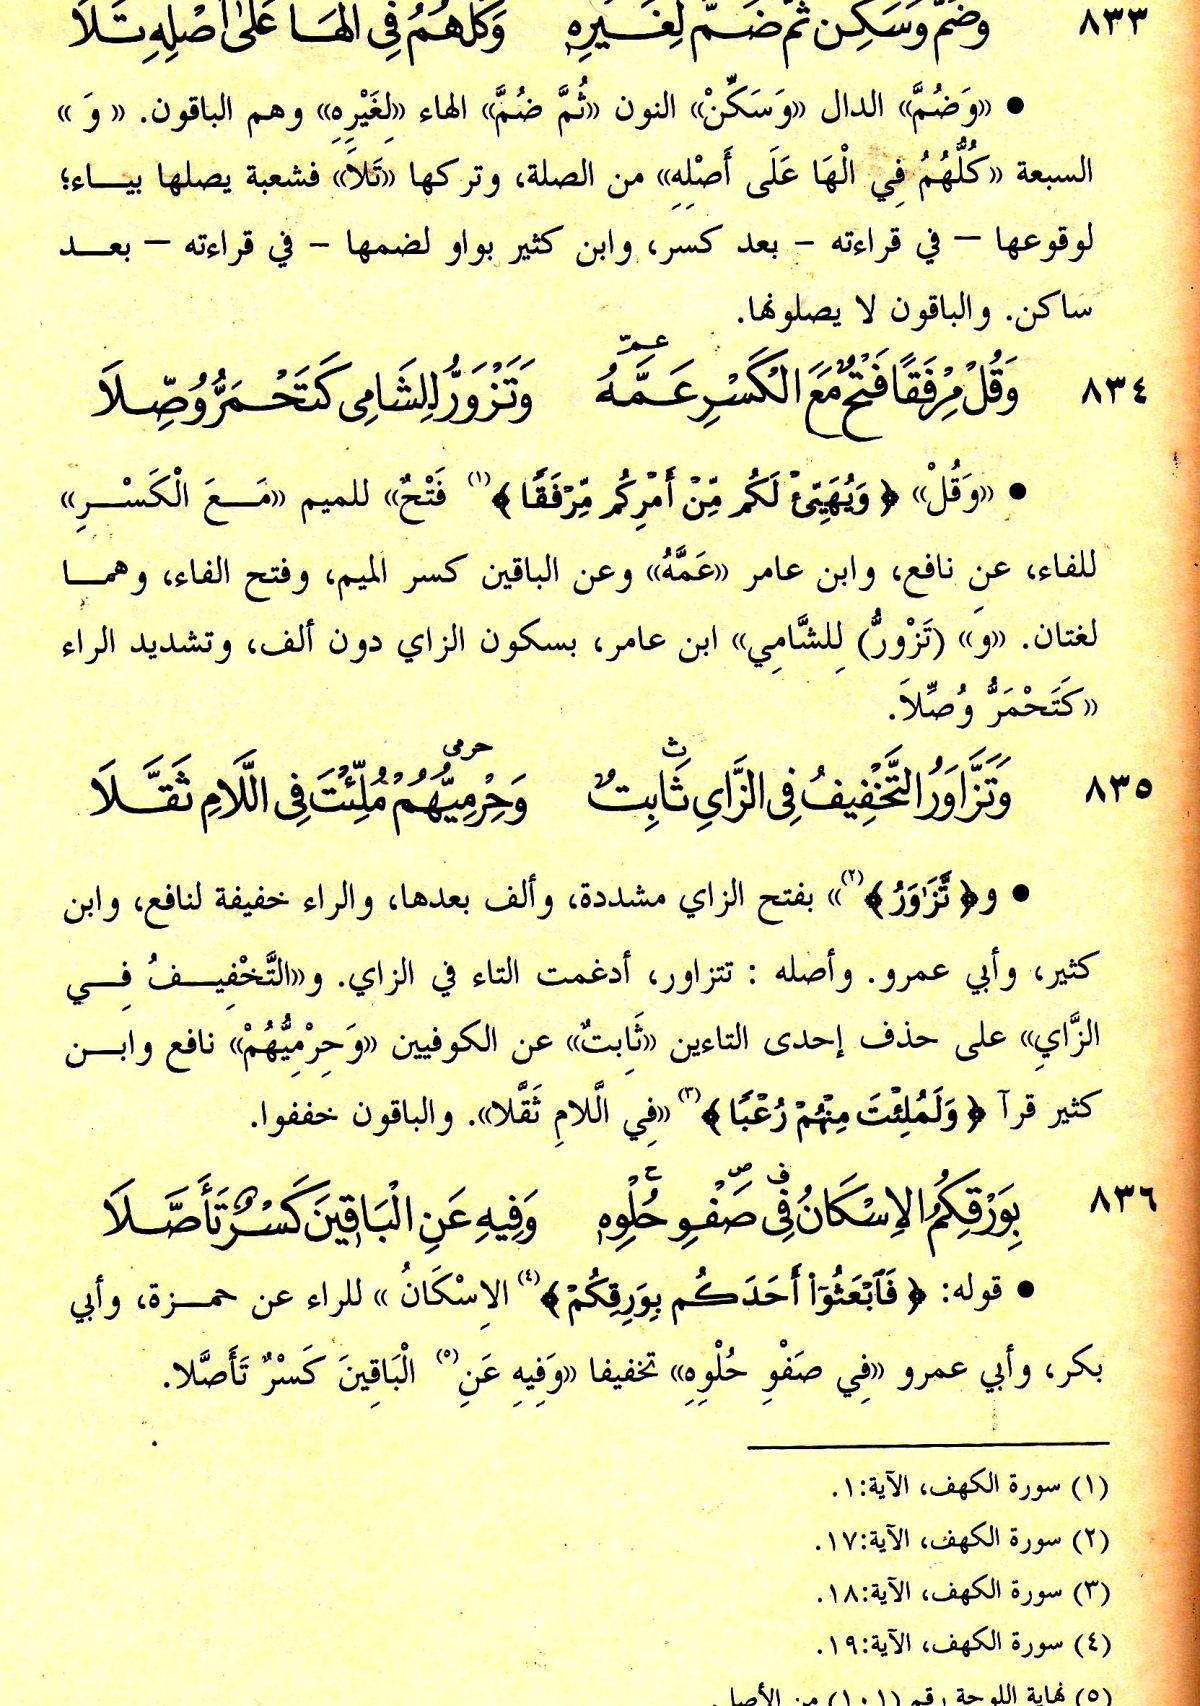 ٨٣٣ وَضُمَّ وَسَكِّنْ ثُمَّ ضُمَّ لِغَيْرِهِ وَكُلُّهُمُ فِي الْهَا عَلَى أَصْلِهِ تَلَا
● «وَضُمَّ» الدال «وَسَكِّنْ» النون «ثُمَّ ضُمَّ» الهاء «لِغَيْرِهِ» وهم الباقون. « وَ »
السبعة «كُلُّهُمُ فِي الْهَا عَلَى أَصْلِهِ» من الصلة، وتركها «تَلاَ» فشعبة يصلها بياء؛
لوقوعها – في قراءته – بعد كسر، وابن كثير بواو لضمها – في قراءته – بعد
ساكن. والباقون لا يصلونها.
عم
٨٣٤ وَقُلْ مِرْفَقًا فَتْحٌ مَعَ الْكَسْرِ عَمَّهُ وَتَزْوَرُّ لِلشَّامِي كَتَحْمَرُّ وُصِّلَا
● «وَقُلْ» ﴿ وَيُهَيِّئْ لَكُم مِّنْ أَمْرِكُم مِّرْفَقًا ﴾(١) فَتْحٌ» للميم «مَعَ الْكَسْرِ»
للفاء، عن نافع، وابن عامر «عَمَّهُ» وعن الباقين كسر الميم، وفتح الفاء، وهما
لغتان. «وَ» (تَزْوَرُّ) لِلشَّامِي» ابن عامر، بسكون الزاي دون ألف، وتشديد الراء
«كَتَحْمَرُّ وُصِّلاَ.
ث حرمى
٨٣٥ وَتَزَّاوَرُ التَّخْفِيفُ فِي الزَّايِ ثَابِتٌ وَحِرْمِيُّهُمْ مُلِّئْتَ فِي اللَّامِ ثَقَّلَا
● و﴿ تَّزَٰوَرُ ﴾(٢)» بفتح الزاي مشددة، وألف بعدها، والراء خفيفة لنافع، وابن
كثير، وأبي عمرو. وأصله : تتزاور، أدغمت التاء في الزاي. و«التَّخْفِيفُ فِي
الزَّايِ» على حذف إحدى التاءين «ثَابِتٌ» عن الكوفيين «وَحِرْمِيُّهُمْ» نافع وابن
كثير قرآ ﴿ وَلَمُلِئْتَ مِنْهُمْ رُعْبًا ﴾(٣) «فِي الَّلامِ ثَقَّلا». والباقون خففوا.
ف ص ح
٨٣٦ بِوَرْقِكُمُ الإِسْكَانُ فِي صَفْوِ حُلْوِهِ وَفِيهِ عَنِ الْبَاقِينَ كَسْرٌ تَأَصَّلَا
● قوله: ﴿ فَٱبْعَثُوٓا۟ أَحَدَكُم بِوَرِقِكُمْ ﴾(٤) الإِسْكَانُ » للراء عن حمزة، وأبي
بكر، وأبي عمرو «فِي صَفْوِ حُلْوِهِ» تخفيفا «وَفِيهِ عَنِ(٥) الْبَاقِينَ كَسْرٌ تَأَصَّلا.
(١) سورة الكهف، الآية:١.
(٢) سورة الكهف، الآية:١٧.
(٣) سورة الكهف، الآية:١٨.
(٤) سورة الكهف، الآية:١٩.
(٥) نهاية اللوحة رقم (١٠١) من الأصل.